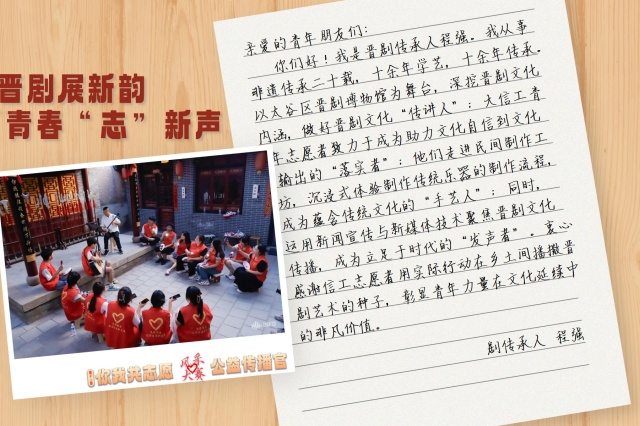 晋剧展新韵
青春“志”新声
亲爱的青年朋友们：
你们好！我是晋剧传承人程强。我从事
非遗传承二十载，十余年学艺，十余年传承。
以太谷区晋剧博物馆为舞台，深挖晋剧文化
内涵，做好晋剧文化“传讲人”；大信工青
年志愿者致力于成为助力文化自信到文化
输出的“落实者”：他们走进民间制作工
坊，沉浸式体验制作传统乐器的制作流程，
成为蕴会传统文化的“手艺人”；同时，
运用新闻宣传与新媒体技术聚焦晋剧文化
传播，成为立足于时代的“发声者”。衷心
感谢信工志愿者用实际行动在乡土间播撒晋
剧艺术的种子，彰显青年力量在文化延续中
的非凡价值。
剧传承人 程强
你我共志愿 风采大赛 公益传播官